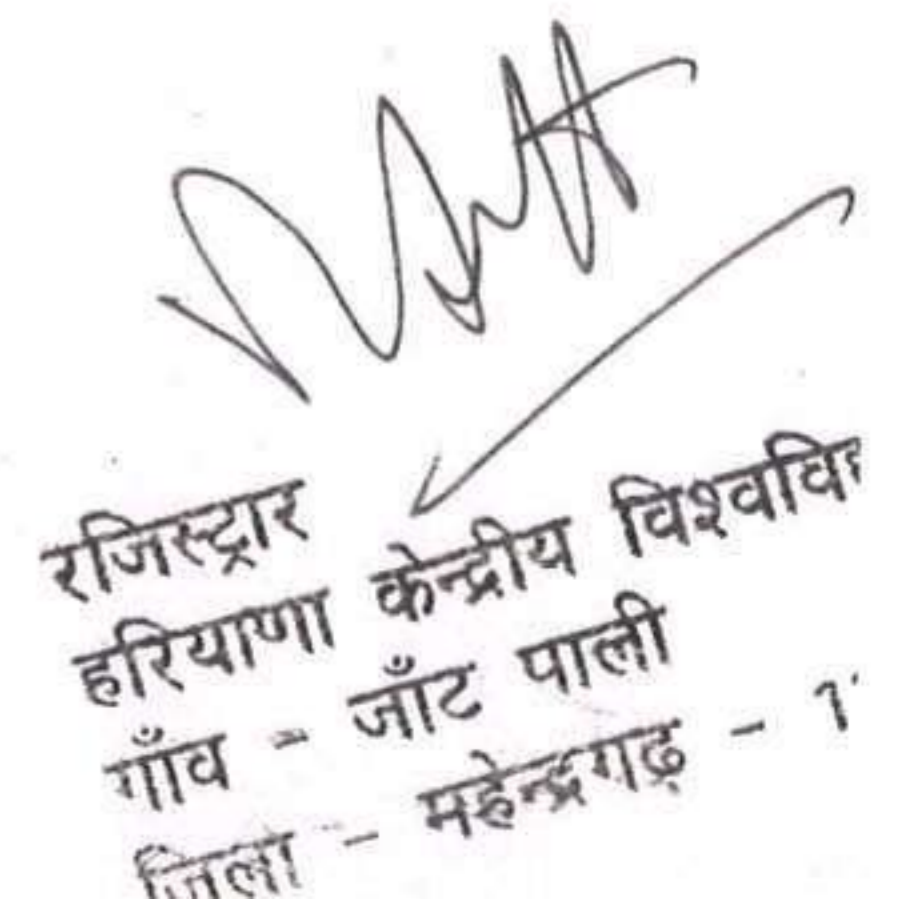 रजिस्ट्रार
हरियाणा केन्द्रीय
गाँव - जाँट पाली
जिला - महेन्द्रगढ़ -